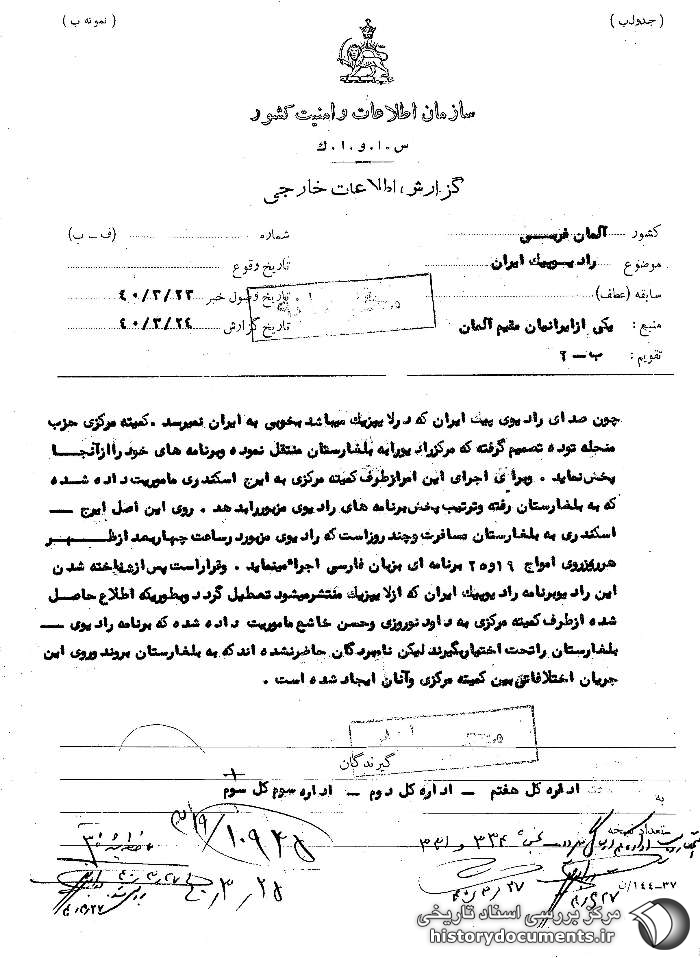 ( جدول ب )
( نمونه ب )
سازمان اطلاعات و امنیت کشور
س ۰ ا ۰ و ۰ ا ۰ ك
گزارش اطلاعات خارجی
کشور آلمان غربی
شماره (ف ـ ب)
موضوع رادیو پیك ایران
تاریخ وقوع
سابقه (عطف)
تاریخ وصول خبر ۴۰/۳/۲۳
منبع : یکی از ایرانیان مقیم آلمان
تاریخ گزارش ۴۰/۳/۲۴
تقویم : ب ـ ۲
چون صدای رادیوی پیك ایران که در لایپزیك میباشد بخوبی به ایران نمیرسد ۰ کمیته مرکزی حزب
منحله توده تصمیم گرفته که مرکز رادیو را به بلغارستان منتقل نموده و برنامه های خود را از آنجا
پخش نماید ۰ و برای اجرای این امر از طرف کمیته مرکزی به ایرج اسکندری ماموریت داده شده
که به بلغارستان رفته و ترتیب پخش برنامه های رادیوی مزبور را بدهد ۰ روی این اصل ایرج ـــ
اسکندری به بلغارستان مسافرت و چند روز است که رادیوی مزبور در ساعت چهار بعد از ظهر
هر روز روی امواج ۱۹ و ۲۵ برنامه ای بزبان فارسی اجراء مینماید ۰ و قرار است پس از شناخته شدن
این رادیو برنامه رادیو پیك ایران که از لایپزیك منتشر میشود تعطیل گردد و بطوریکه اطلاع حاصل
شده از طرف کمیته مرکزی به داود نوروزی و حسن خاشع ماموریت داده شده که برنامه رادیوی ـــ
بلغارستان را تحت اختیار بگیرند لیکن نامبردگان حاضر نشده اند که به بلغارستان بروند و روی این
جریان اختلافاتی بین کمیته مرکزی و آنان ایجاد شده است ۰
گیرندگان
به اداره کل هفتم ـ اداره کل دوم ـ اداره سوم کل سوم
تعداد نسخه
۳۳۴ و ۳۳۱
۱۰۹۴۵
۳/۲۵
۴۰/۳/۲۷
۱۴۴-۳۷
مرکز بررسی اسناد تاریخی
historydocuments.ir